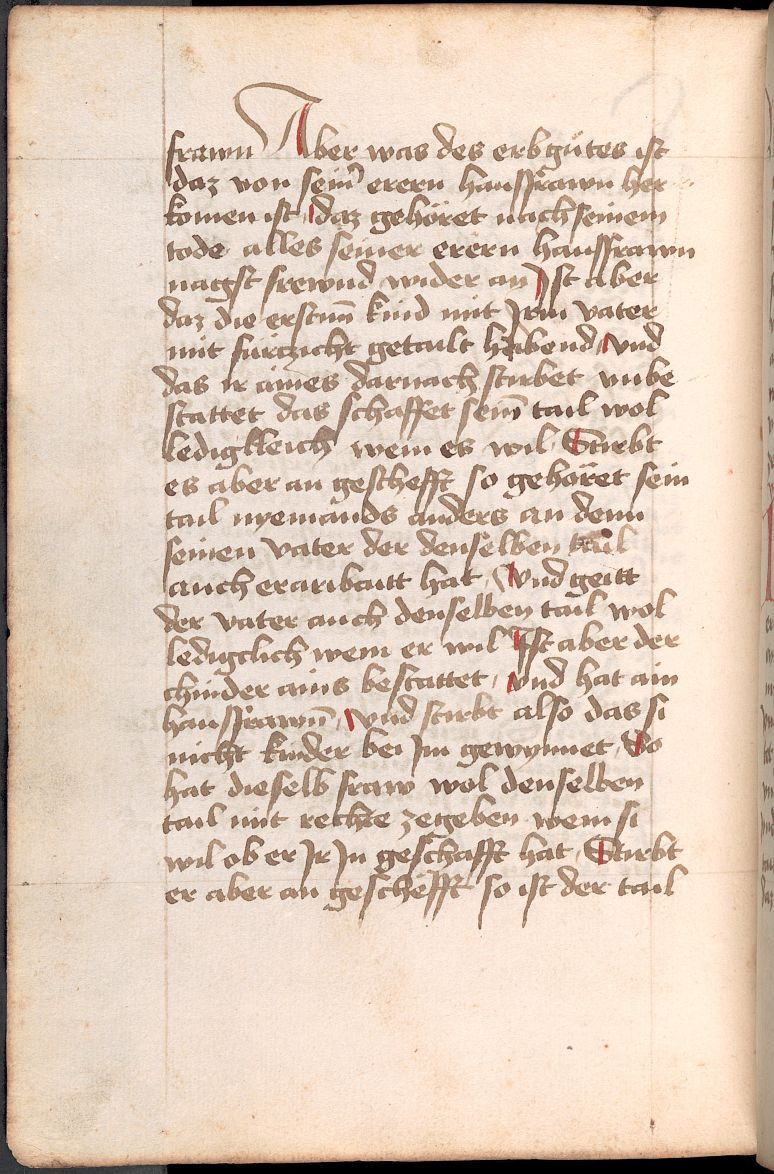 frawn Aber was des erbgutes ist
daz von seim̄ erern hausfrawn her
komen ist / daz gehöret nach seinem
tode alles seiner erern hausfrawn
nagst frewnd wider an Ist aber
daz die erstnn̄ kind mit Irm vater
mit fürczicht getailt habend / vnd
das ir aines darnach stirbet vnbe
stattet das schaffet seim̄ tail wol
lediglleich wem es wil Stirbt
es aber an geschefft so gehöret sein
tail nyemands anders an denn
seinen vater der denselben tail
auch eraribaitt hat / Vnd geitt
der vater auch denselben tail wol
ledigclich wem er wil Ist aber der
chinder ains bestattet / vnd hat ain
hausfrawn̄ / vnd stirbt also das si
nicht kinder bei Im gewynnet So
hat dieselb fraw wol denselben
tail mit rechte zegeben wem si
wil ob er Ir In geschafft hat / Stirbt
er aber an geschefft so ist der tail